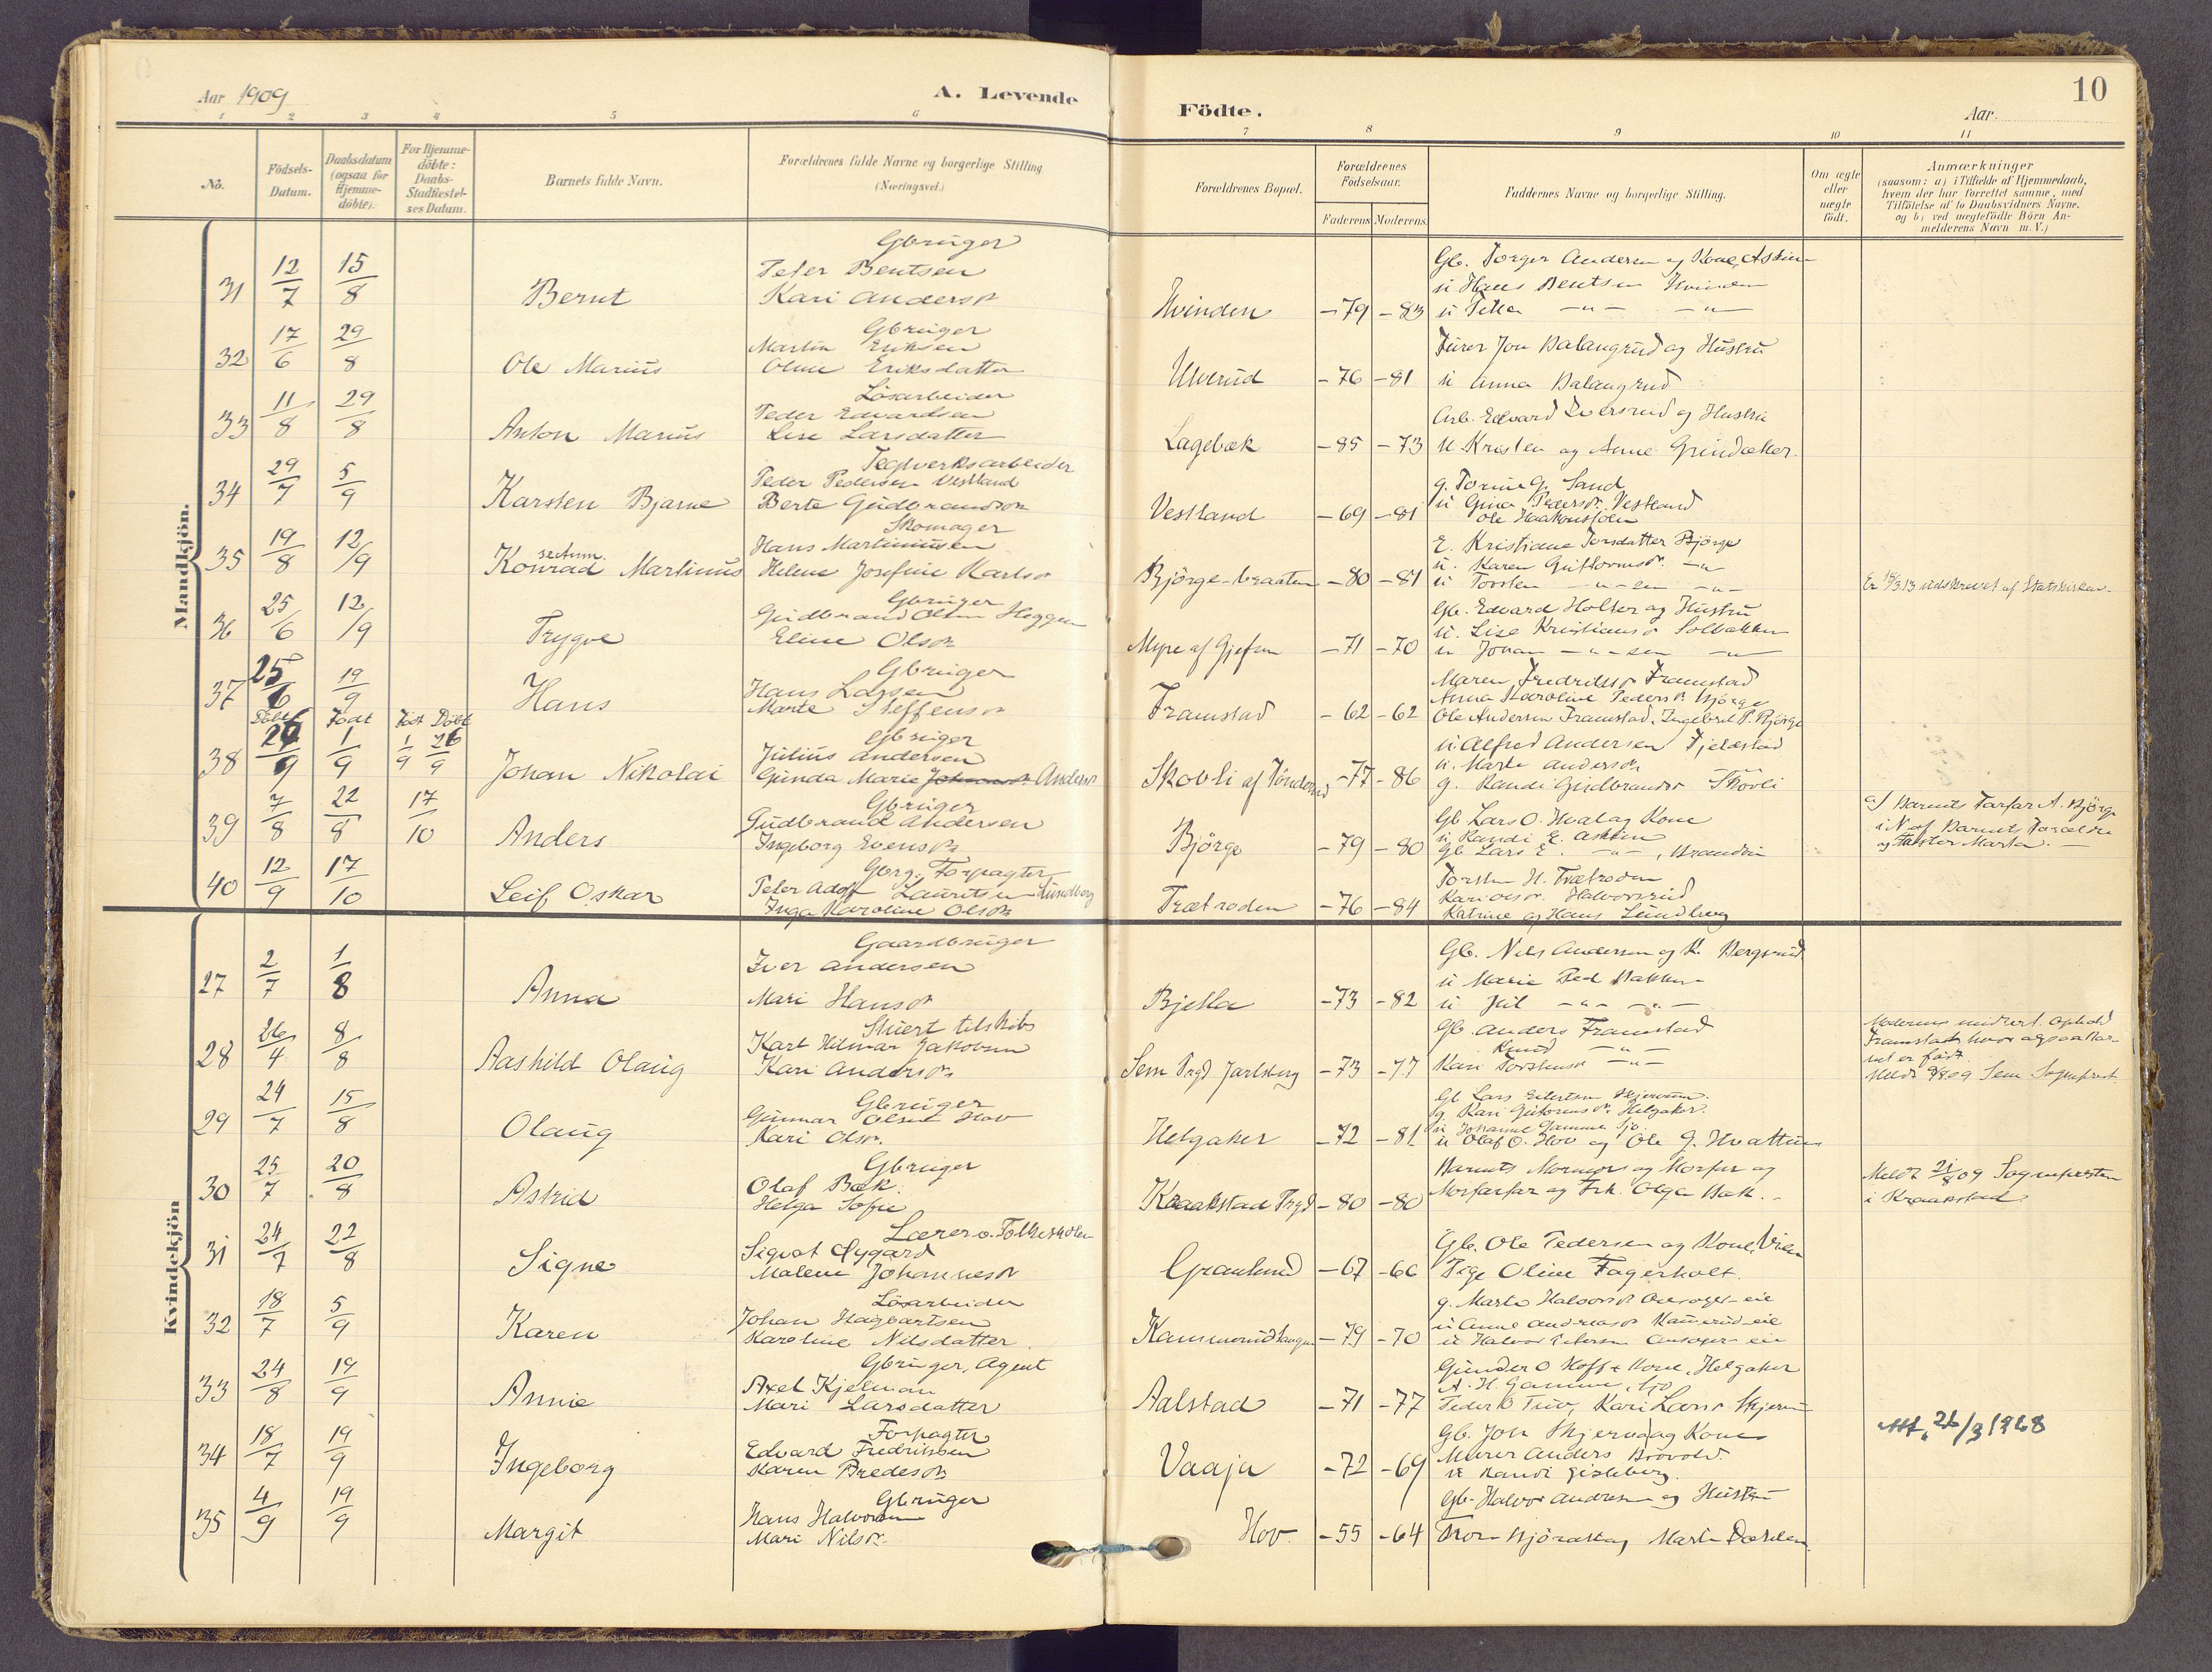 Aar 1909
A. Levende
Födte.
10
Aar.
1 2 3 4 5 6
7 8 9 10 11
No.
Födsels-Datum.
Daabsdatum (ogsaa for Hjemme-döbte).
For Hjemme-döbte: Daabs-Stadfæstel-ses Datum.
Barnets fulde Navn.
Forældrenes fulde Navne og borgerlige Stilling
(Næringsvei.)
Forældrenes Bopæl.
Forældrenes Födselsaar.
Faderens
Moderens.
Faddernes Navne og borgerlige Stilling.
Om ægte eller uægte födt.
Anmærkninger
(saasom: a) i Tilfælde af Hjemmedaab,
hvem der har forrettet samme, med
Tilföielse af to Daabsvidners Navne.
og b) ved uægtefödte Börn An-
melderens Navn m. V.)
Mandkjön.
31 12/7 15/8 Bernt
Gbruger
Peter Bentsen
Kari Andersdr
Hvinden -79 -83
Gb. Torger Andersen og Kone,
u Hans Bentsen Hvinden
32 17/6 29/8 Ole Marius
Gbruger
Martin Eriksen
Oline Eriksdatter
Ulverud -76 -81
Furer Jon Dalangrud og Hustru
u Anna Dalangrud
33 11/8 29/8 Anton Marius
Lösarbeider
Peder Edvardsen
Lise Larsdatter
Lagebæk -85 -73
Arb. Edvard Iversrud og Hustru
U. Kristen og Anne Grindaker.
34 29/7 5/9 Karsten Bjarne
Teglverksarbeider
Peder Pedersen Vestland
Berte Gudbrandsdr
Vestland -69 -81
u Gina Pedersdr. Vestland
35 19/8 12/9 Konrad Martinius
Skomager
Hans Martiniusen
Helene Josefine Karlsdr
Bjørge-braaten -80 -81
E. Kristiane Torsdatter Bjørge
u. Karen Guttormsdr. -"-
u Torsten -"- sen -"-
Er 15/3 13 udskrevet af Statskirken.
36 25/6 12/9 Trygve
Gbruger
Gudbrand Olsen Heggen
Eline Olsdr
Myre af Gjefsen -71 -70
Gb. Edvard Holter og Hustru
u. Lise Kristiansdr Solbakken
u Johan -"- sen -"-
37 25/6 19/9 Hans
Gbruger
Hans Larsen
Marte Steffensdr
Framstad -62 -62
Maren Fredriksdr Framstad
Anna Karoline Pedersdr Bjørge
Ole Andersen Framstad, Ingebret P. Bjørge
Döbt Födt Födt Döbt
38 26/9 1/9 1/9 26/9 Johan Nikolai
Gbruger
Julius Andersen
Gunda Marie Andersdr
Skovli af Tönderud -77 -86
u. Alfred Andersen Fjelstad
u. Marte Andersdr
g. Randi Gudbrandsdr Skovli
39 7/8 22/8 17/10 Anders
Gbruger
Gudbrand Andersen
Ingeborg Evensdr
Bjørge -79 -80
Gb Lars O. Hval og Kone
u Randi E. Askim
Gb Lars E. -"-,
a) Barnets Farfar A. Bjørge
i N. af Barnets Forældre
og Faster Marta.
40 12/9 17/10 Leif Oskar
Gbrg., Forpagter
Peter Adolf Lauritsen Lundberg
Inga Karoline Olsdr
Trætroden -76 -84
Torsten H. Trætroden
Kari Olsdr. Halvorsrud
Katrine og Hans Lundberg
Kvindekjön
27 2/7 1/8 Anna
Gaardbruger
Iver Andersen
Mari Hansdr
Bjella -73 -82
Gb. Nils Andersen og K. Bergsrud
u Marie Ped Bakken
28 26/4 8/8 Aashild Olaug
Stuert tilskibs
Karl Hilmar Jakobsen
Kari Andersdr
Sem Prgd Jarlsberg -73 -77
Gb. Anders Framstad
Knud -"-
Kari Torstensdr -"-
Moderens midlert. ophold
Framstad, hvor ogsaa Bar-
net er født.
Meldt 9/8 09 Sem Sogneprest
29 24/7 15/8 Olaug
Gbruger
Gunnar Olsen Hov
Kari Olsdr.
Helgaker -72 -81
g. Kari Guttormsdr. Helgaker.
u Johanne Gamme Sjo.
u Olaf O. Hov og Ole G. Hvattum
30 25/7 20/8 Astrid
Gbruger
Olaf Bæk.
Helga Sofie
Kraakstad Prgd -80 -80
Barnets Mormor og Morfar og
Morfarfar og Frk. Olga Bæk.
Meldt 21/8 09 Sognepresten
i Kraakstad
31 24/7 22/8 Signe
Lærer v. Folkeskolen
Sigvat Nygard
Malene Johannesdr
Granlund -67 -66
Gb. Ole Pedersen og Kone, Vien
Pige Oline Fagerholt.
32 18/7 5/9 Karen
Lösarbeider
Johan Hagbartsen
Karoline Nilsdatter.
Kammerudhaugen -79 -70
g. Marte Halvorsdr
u Anne Andreasdr Kamerud-eie
33 24/8 19/9 Annie
Gbruger, Agent
Axel Kjelman
Mari Larsdatter
Aalstad -71 -77
Gunder O Hoff + Kone, Helgaker
A. H. Gamme, Sjo
34 18/7 19/9 Ingeborg
Forpagter
Edvard Fredriksen
Karen Bredesdr
Vaaja -72 -69
Gb. Joh Skjervaag Kone
Murer Anders Brövold.
Att. 26/3 1968
35 4/9 19/9 Margit
Gbruger
Hans Halvorsen
Mari Nilsdr.
Hov. -55 -64
Gb. Halvor Andresen og Hustru